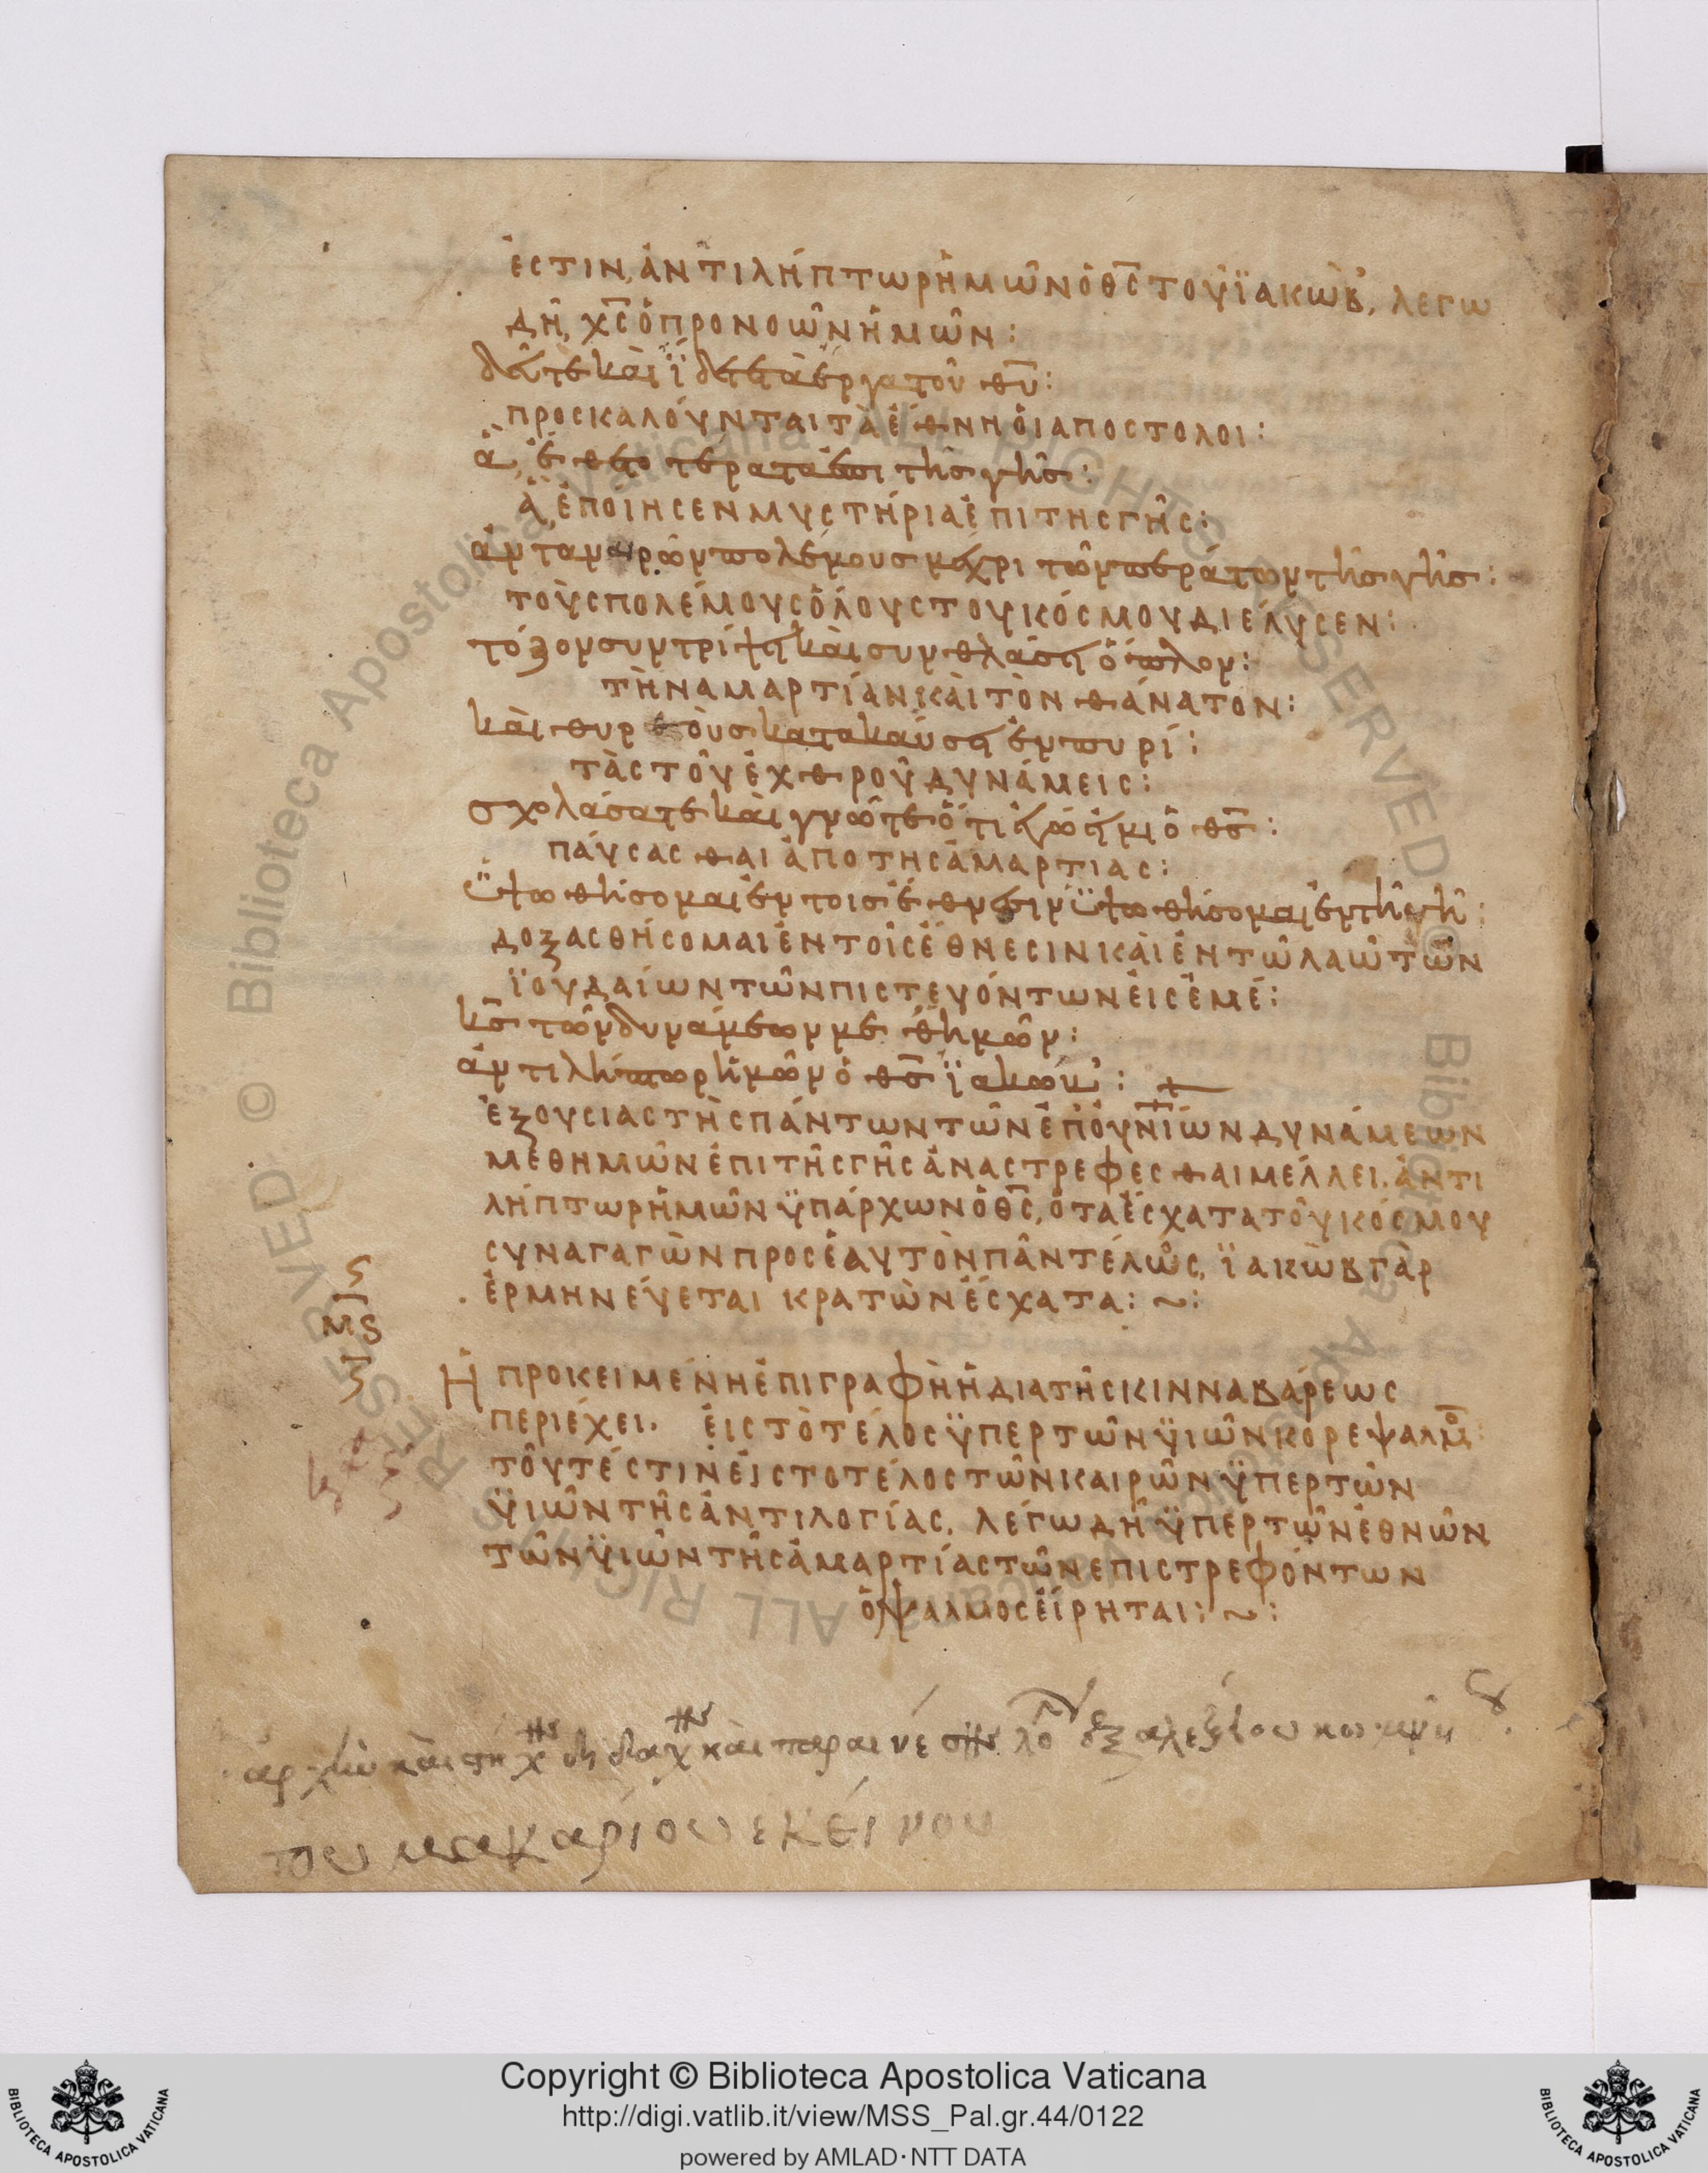 ἐστιν, ἀντιλήπτωρ ἡμῶν ὁ θς τοῦ ϊακὼβ, λέγω
δὴ, χς ὁ προνοῶν ἡμῶν:
δεῦτε καὶ ἴδετε τὰ ἔργα τοῦ θυ:
προσκαλοῦνται τὰ ἔθνη ὁι αποστολοι:
ἃ, ἔθετο τέρατα ἐπι τῆς γῆς:
ἃ, ἐποίησεν μυστήρια ἐπι της γῆς:
ἀνταναιρῶν πολέμους μέχρι τῶν περάτων τῆς γῆς:
τοὺς πολέμους ὅλους του κόσμου διέλυσεν:
τόξον συντρίψει καὶ συνθλάσει ὅπλον:
τὴν αμαρτίαν καὶ τὸν θάνατον:
καὶ θυρεοὺς κατακαύσει ἐν πυρί:
τὰς τοῦ ἐχθροῦ δυνάμεις:
σχολάσατε καὶ γνῶτε ὅτι ἐγώ ἐιμι ὁ θς:
παύσασθαι ἀπο της ἁμαρτιας:
ϋψωθήσομαι ἐν τοις ἔθνεσιν ϋψωθήσομαι ἐν τῇ γῇ:
δοξασθήσομαι ἐν τοῖς ἔθνεσιν καὶ ἐν τῶ λαῶ τῶν
ϊουδαίων τῶν πιστευόντων ἐις ἐμέ:
κς τῶν δυνάμεων μεθ ἡμῶν:
ἀντιλήπτωρ ἡμῶν ὁ θς ϊακώβ:
ἐξουσιαστὴς πάντων τῶν ἐπουνίων δυνάμεων
μεθ ημῶν ἐπι τῆς γῆς ἀναστρεφεσθαι μέλλει. ἀντι
λήπτωρ ἡμῶν ϋπάρχων ὁ θς, ὁ τα ἔσχατα τοῦ κόσμου
συναγαγὼν προς ἑαυτὸν παντέλῶς, ϊακὼβ γὰρ
ἑρμηνεύεται κρατῶν ἔσχατα: ~:
μς
Ἡ προκειμένη ἐπιγραφὴ ἡ δια τῆς κινναβάρεως
περιέχει. ἐις τὸ τέλος ϋπερ τῶν ϋιῶν κορε ψαλμο:
τοῦτέστιν ἐις το τέλος τῶν καιρῶν ϋπερ τῶν
ϋιῶν τῆς ἀντιλογίας, λέγω δὴ ϋπερ τῶν ἐθνῶν
τῶν ϋιῶν τῆς ἁμαρτίας τῶν επιστρεφόντων
ὁ ψαλμος ἐίρηται: ~:
του μακαρίου εκείνου
Copyright © Biblioteca Apostolica Vaticana
http://digi.vatlib.it/view/MSS_Pal.gr.44/0122
powered by AMLAD·NTT DATA
BIBLIOTECA APOSTOLICA VATICANA
BIBLIOTECA APOSTOLICA VATICANA